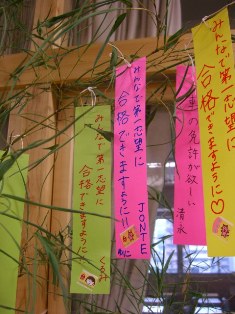 みんなで第一志望に
合格できますように♡
生の免許が欲しい
清永
みんなで第一志望に
合格できますように!!
JONTE
みんなで第一志望に
合格できますように
くるみ